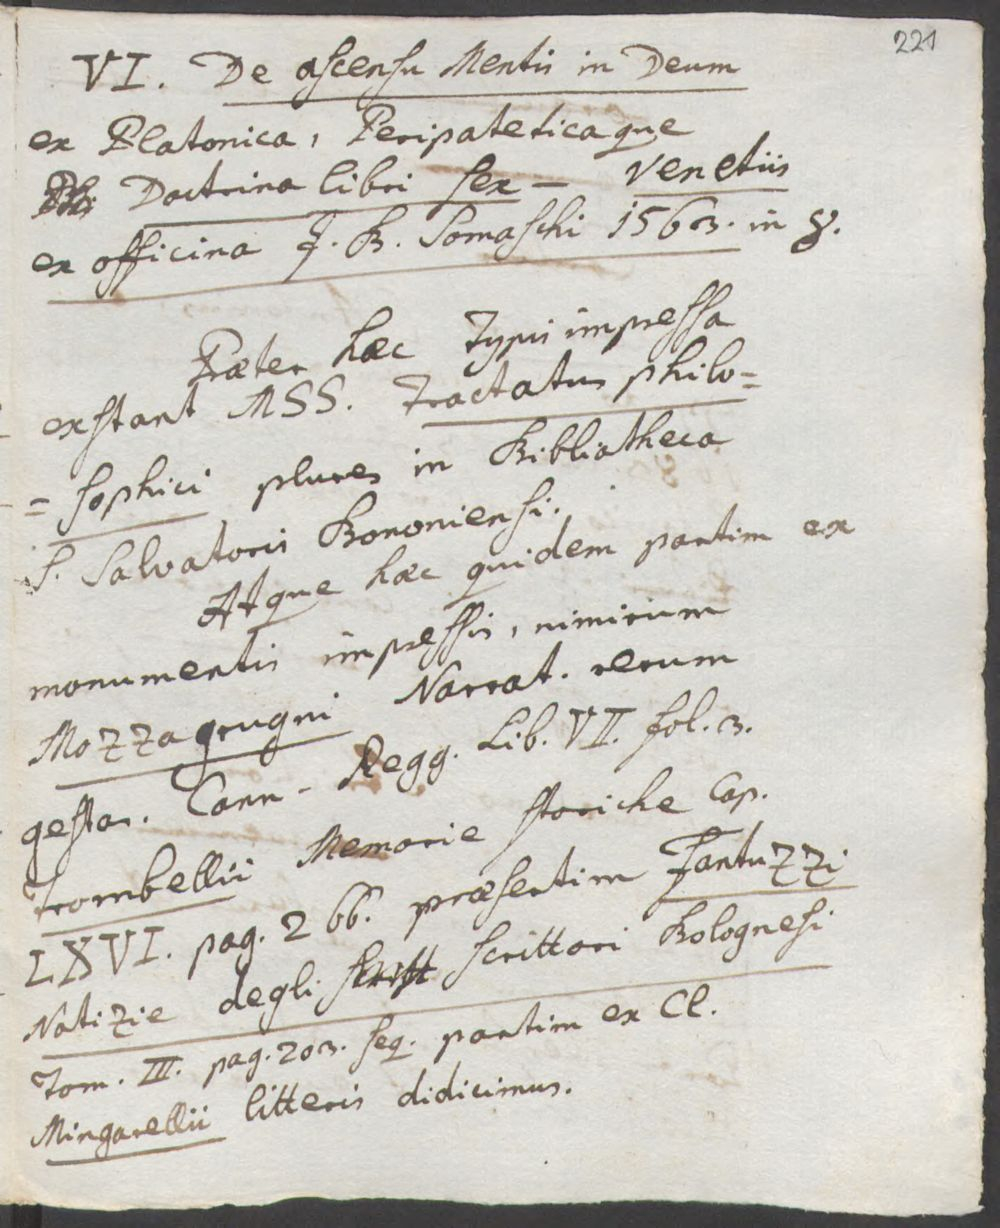 221
VI. De ascensu Mentis in Deum
ex Platonica, Peripateticaque
Doctrina libri sex – Venetiis
ex officina J. B. Somaschi 1563. in 8.
Præter hæc Typis impressa
exstant MSS. Tractatus philo=
=sophici plures in Bibliotheca
S. Salvatoris Bononiensi.
Atque hæc quidem partim ex
monumentis impressis, nimirum
Mozzagrugni Narrat. rerum
gestar. Cann- Regg. Lib. VII. fol. 3.
Trombellii Memorie storiche Cap.
LXVI. pag. 266. præsertim Fantuzzi
Notizie degli Scritt Scrittori Bolognesi
Tom. III. pag. 203. seq. partim ex Cl.
Mingarellii litteris didicimus.